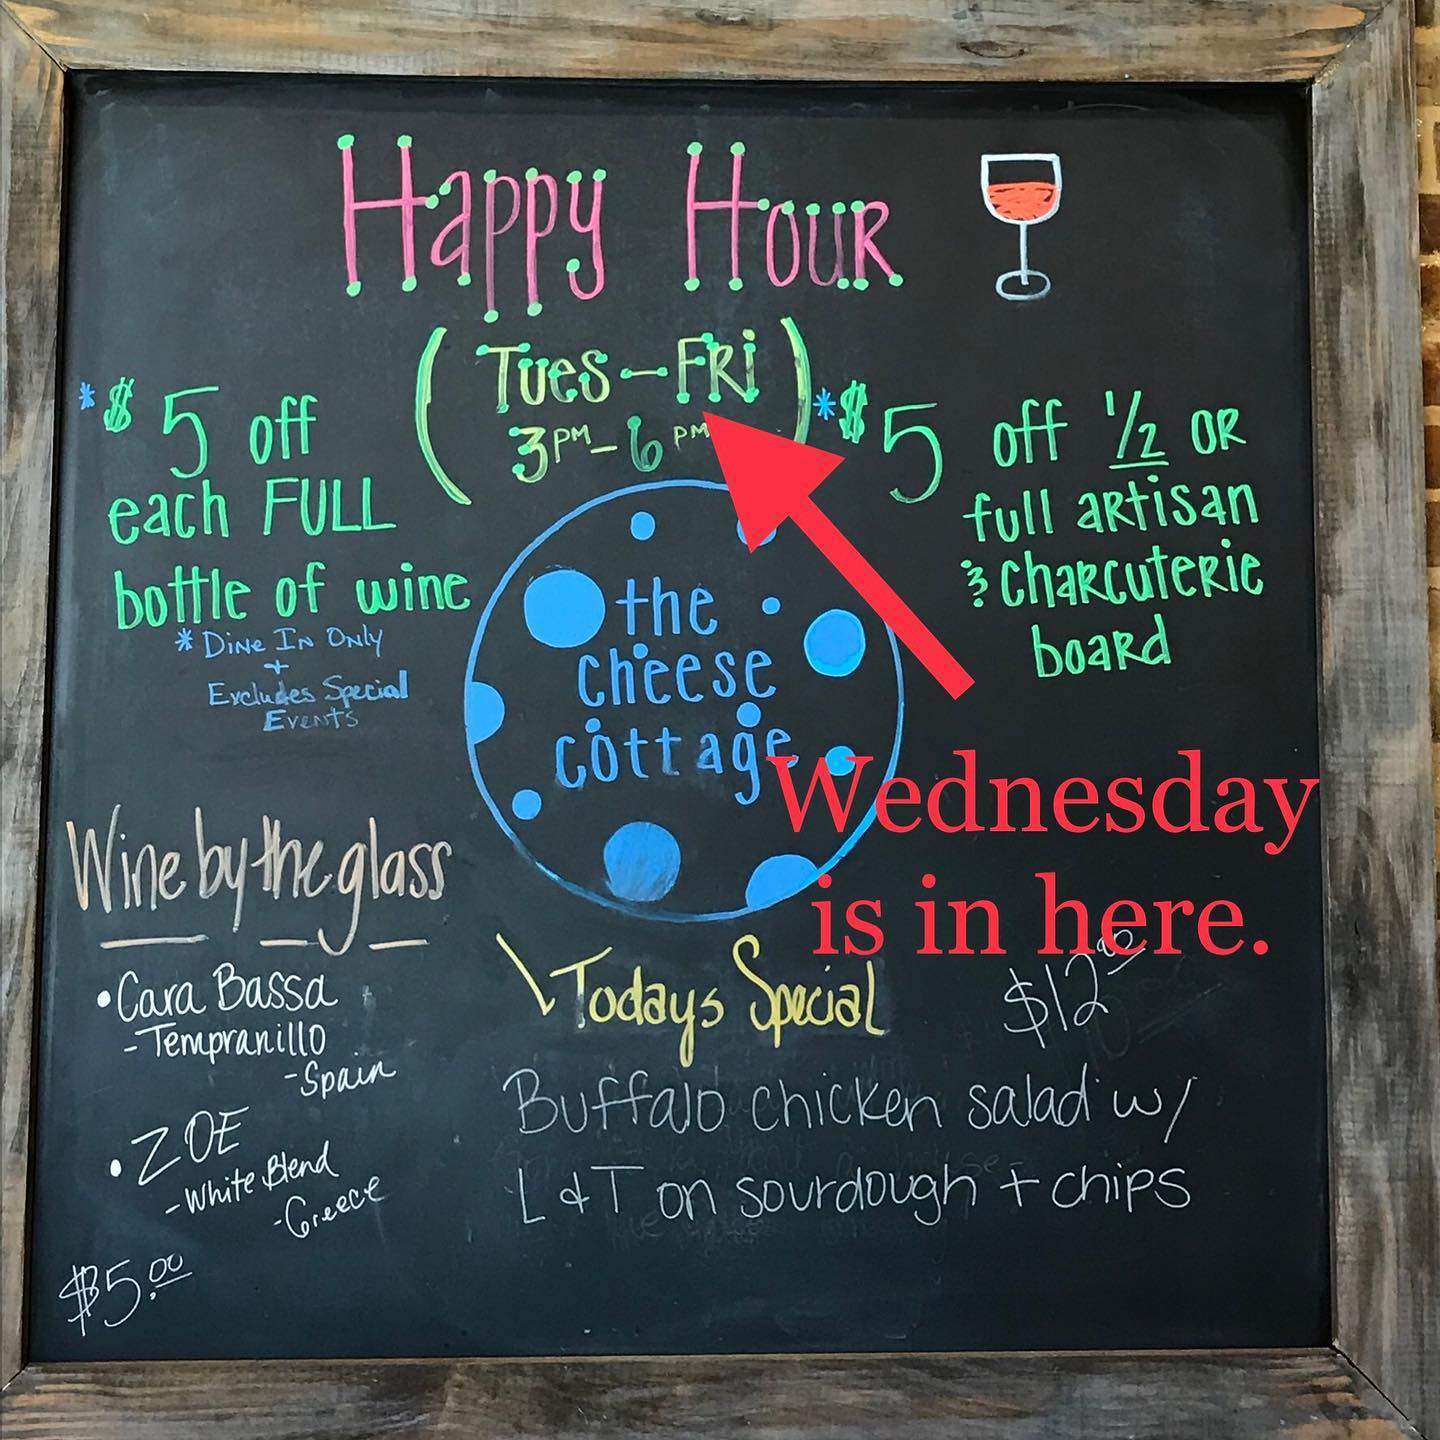 Happy Hour
(Tues-Fri
3PM-6PM)
*$5 off
each FULL
bottle of wine
*Dine In Only
+
Excludes Special
Events
*$5 off 1/2 or
full artisan
& charcuterie
board
the
cheese
cottage
Wednesday
is in here.
Wine by the glass
• Cara Bassa
- Tempranillo
- Spain
• ZOE
- White Blend
- Greece
$5.00
Todays Special
$12.00
Buffalo chicken salad w/
L & T on sourdough + chips